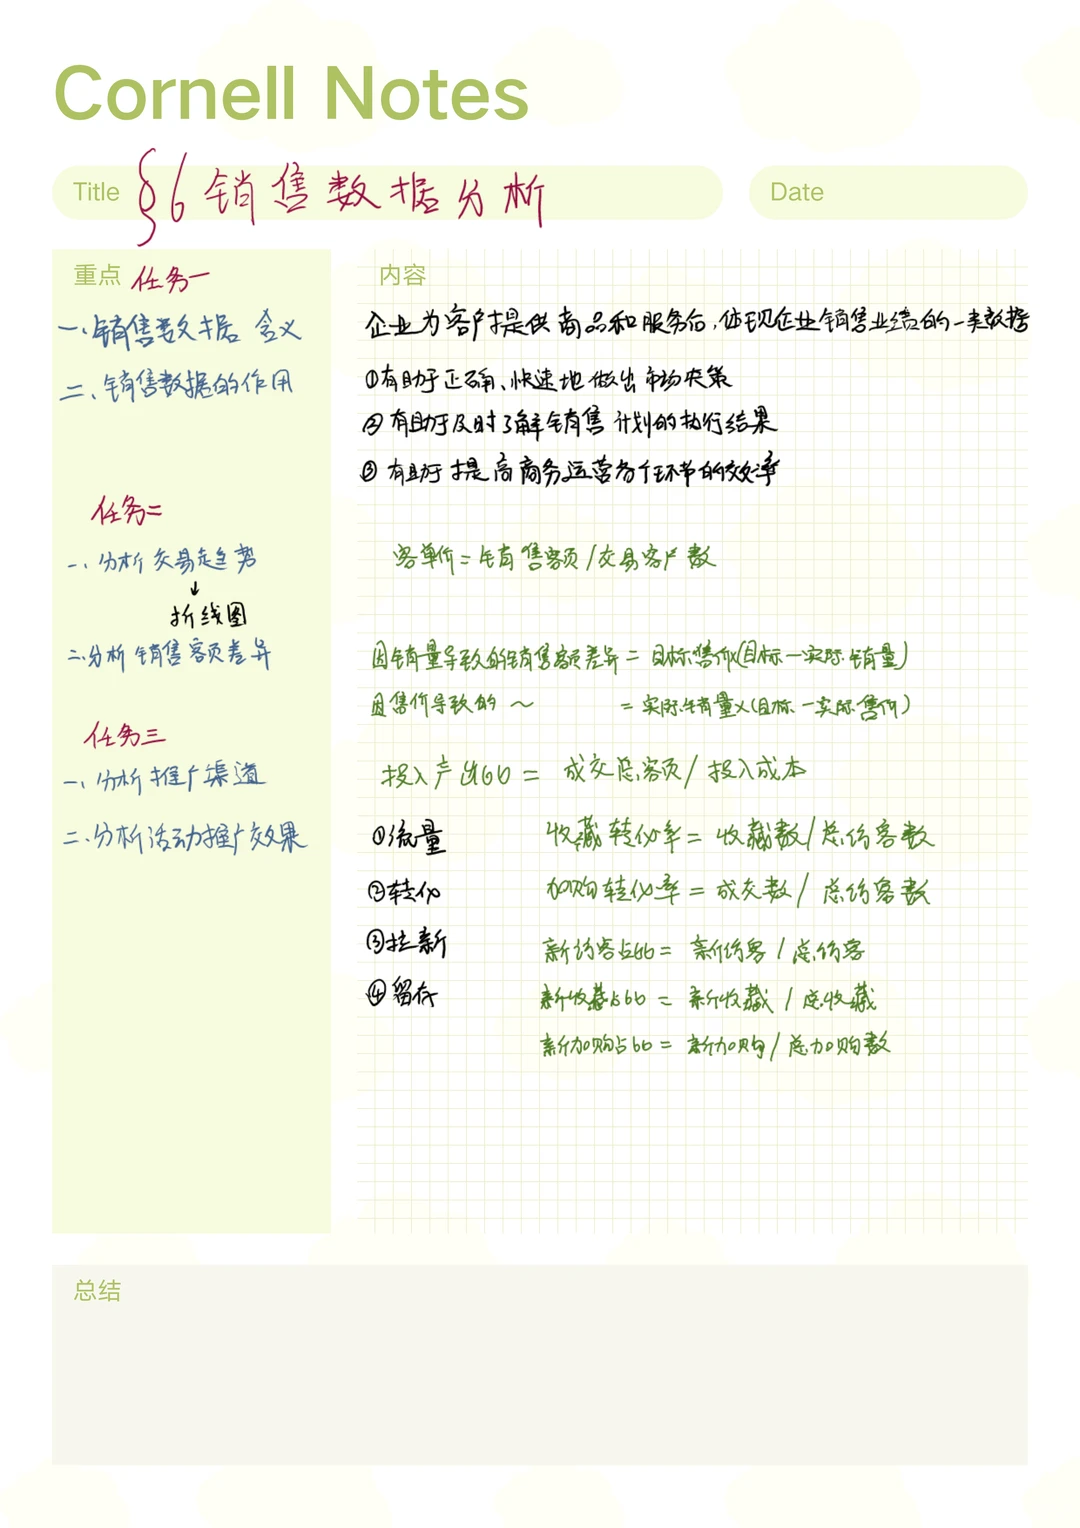 Cornell Notes
Title §6 销售数据分析
Date
重点 任务一
内容
一、销售数据 含义
企业为客户提供商品和服务后,体现企业销售业绩的一类数据
二、销售数据的作用
①有助于正确、快速地做出市场决策
②有助于及时了解销售计划的执行结果
③有助于提高商务运营各个环节的效率
任务二
一、分析交易趋势
↓
折线图
客单价=销售额/交易客户数
二、分析销售额差异
因销量导致的销售额差异=目标售价x(目标-实际销量)
因售价导致的~ =实际销量x(目标-实际售价)
任务三
一、分析推广渠道
投入产出比=成交总额/投入成本
二、分析活动推广效果
①流量
收藏转化率=收藏数/总访客数
②转化
加购转化率=成交数/总访客数
③拉新
新访客占比=新访客/总访客
④留存
新收藏占比=新收藏/总收藏
新加购占比=新加购/总加购数
总结